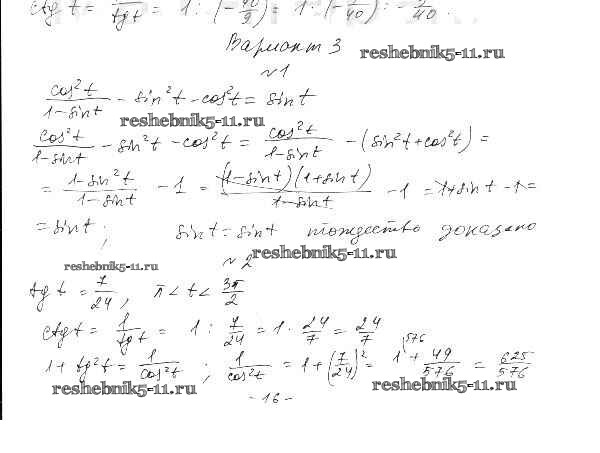 ctg t = 1/tg t = 1 : (-40/9) = 1 · (-9/40) = -9/40.
Вариант 3 reshebnik5-11.ru
№1
cos²t/(1-sin t) - sin²t - cos²t = sin t
reshebnik5-11.ru
cos²t/(1-sin t) - sin²t - cos²t = cos²t/(1-sin t) - (sin²t + cos²t) =
= (1-sin²t)/(1-sin t) - 1 = (1-sin t)(1+sin t)/(1-sin t) - 1 = 1+sin t - 1 =
= sin t; sin t = sin t тождество доказано
reshebnik5-11.ru №2 reshebnik5-11.ru
tg t = 7/24, π < t < 3π/2
ctg t = 1/tg t = 1 : 7/24 = 1 · 24/7 = 24/7
1 + tg²t = 1/cos²t ; 1/cos²t = 1 + (7/24)² = 1^576 + 49/576 = 625/576
reshebnik5-11.ru reshebnik5-11.ru
- 16 -